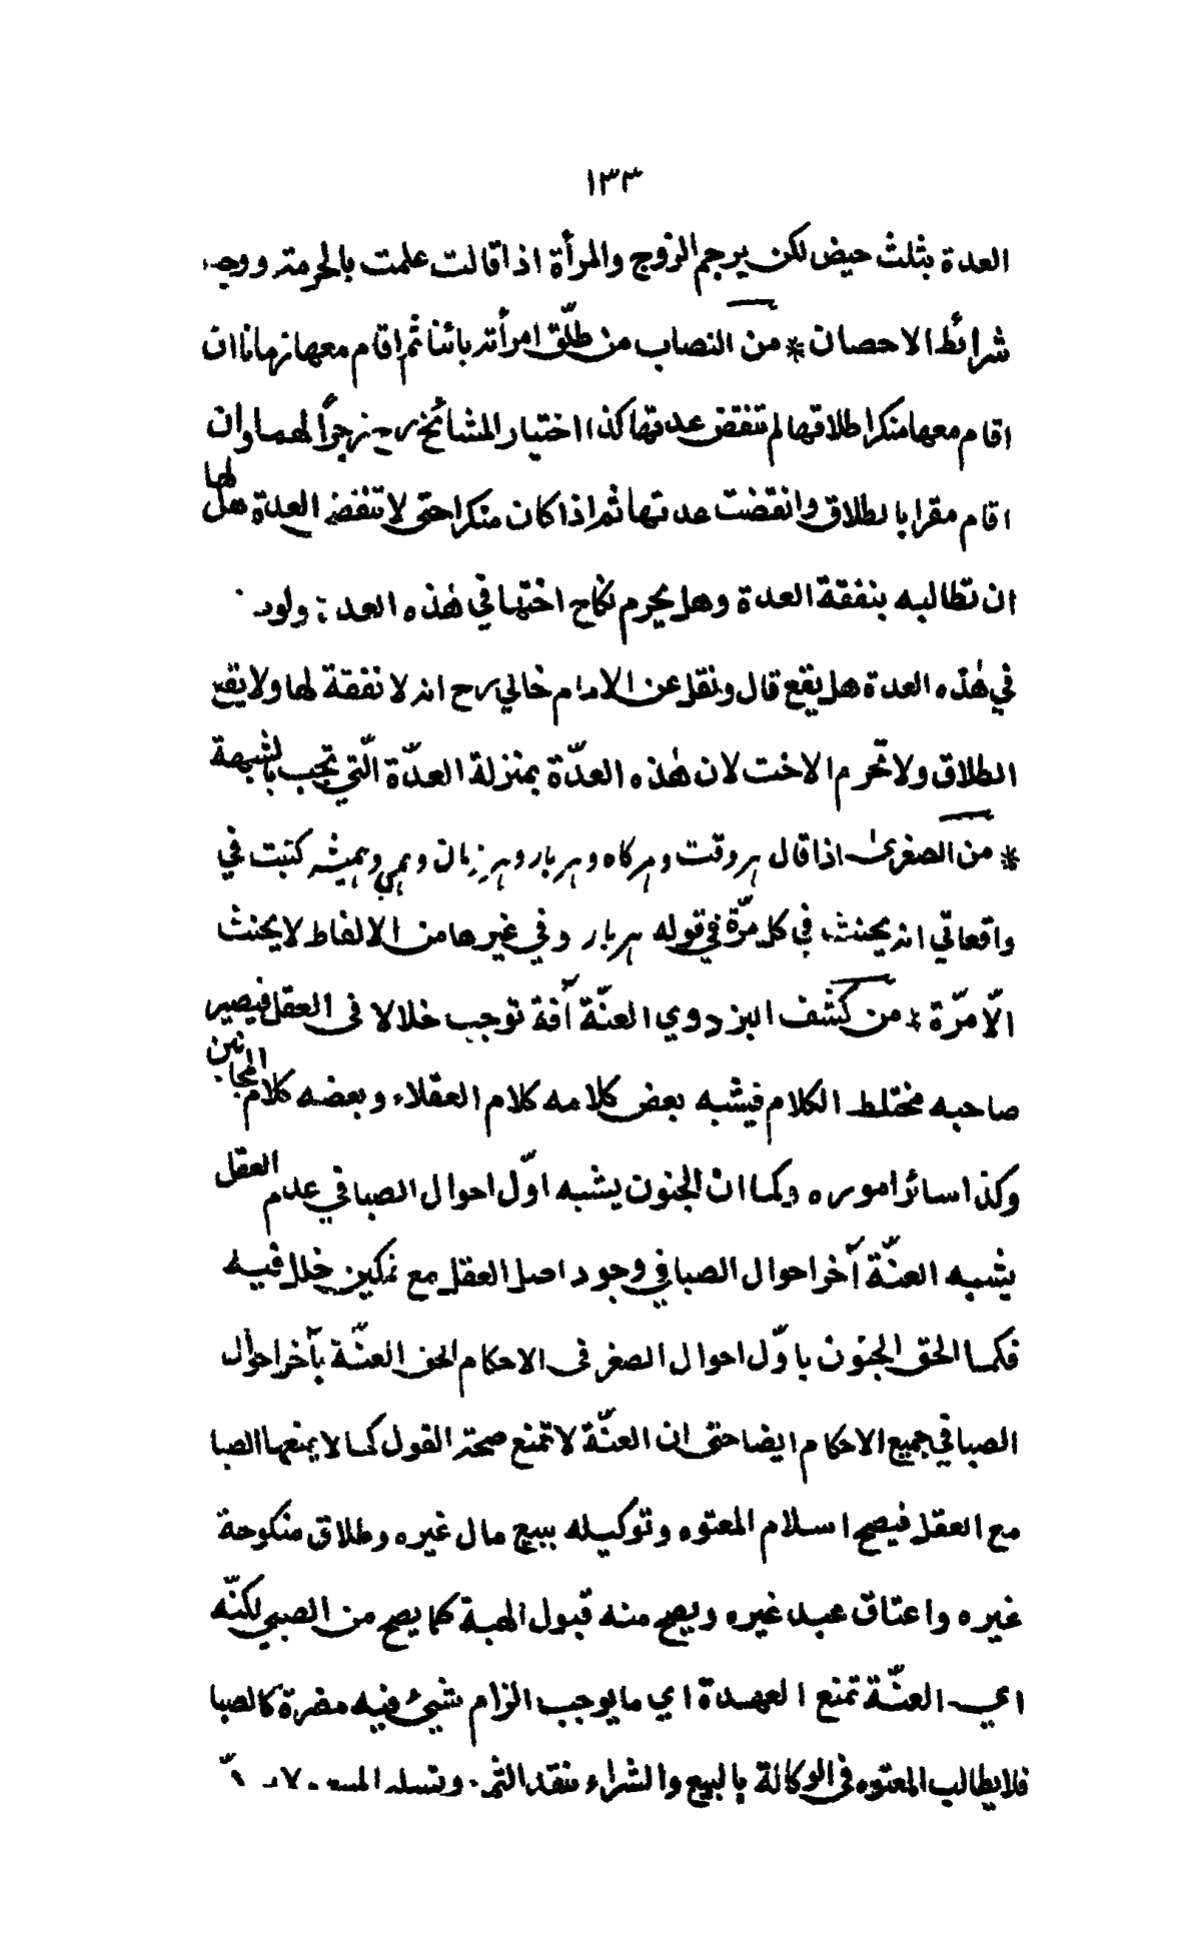 ١٣٣
العدة بثلث حيض لكن يرجم الزوج والمرأة اذا قالت علمت بالحرمة ووجد
شرائط الاحصان * من النصاب من طلّق امرأته بائنا ثم اقام معها زمانا ان
اقام معها منكرا طلاقها لم تنقض عدتها كذا اختيار المشائخ رح زجراً لهما وان
اقام مقرا بالطلاق وانقضت عدتها ثم اذا كان منكرا حتى لا تنقض العدة هل لها
ان تطالبه بنفقة العدة وهل يحرم نكاح اختها في هٰذه العدة ولو
في هٰذه العدة هل يقع قال ونقل عن الامام خالي رح انه لا نفقة لها ولا يقع
الطلاق ولا تحرم الاخت لان هٰذه العدّة بمنزلة العدّة الّتي تجب بالشبهة
* من الصغرىٰ اذا قال هر وقت وهركاه وهر بار وهر زمان وهمى وهميشه كتبت في
واقعاتي انه يحنث في كل مرّة في قوله هر بار وفي غيرها من الالفاظ لا يحنث
الّا مرّة * من كشف البزدوي العتّة آفة توجب خلالا فى العقل فيصير
صاحبه مختلط الكلام فيشبه بعض كلامه كلام العقلاء وبعضه كلام المجانين
وكذا سائر اموره وكما ان الجنون يشبه اوّل احوال الصبا في عدم العقل
يشبه العتّة آخر احوال الصبا في وجود اصل العقل مع تمكين خلل فيه
فكما الحق الجنون باوّل احوال الصغر فى الاحكام الحق العتّة بآخر احوال
الصبا في جميع الاحكام ايضا حتى ان العتّة لا تمنع صحة القول كما لا يمنعها الصبا
مع العقل فيصح اسلام المعتوه وتوكيله ببيع مال غيره وطلاق منكوحة
غيره واعتاق عبد غيره ويصح منه قبول الهبة كما يصح من الصبي لكنّه
اي العتّة تمنع العهدة اي ما يوجب الزام شيئ فيه مضرة كالصبا
فلا يطالب المعتوه فى الوكالة بالبيع والشراء بنقد الثمن وتسليم